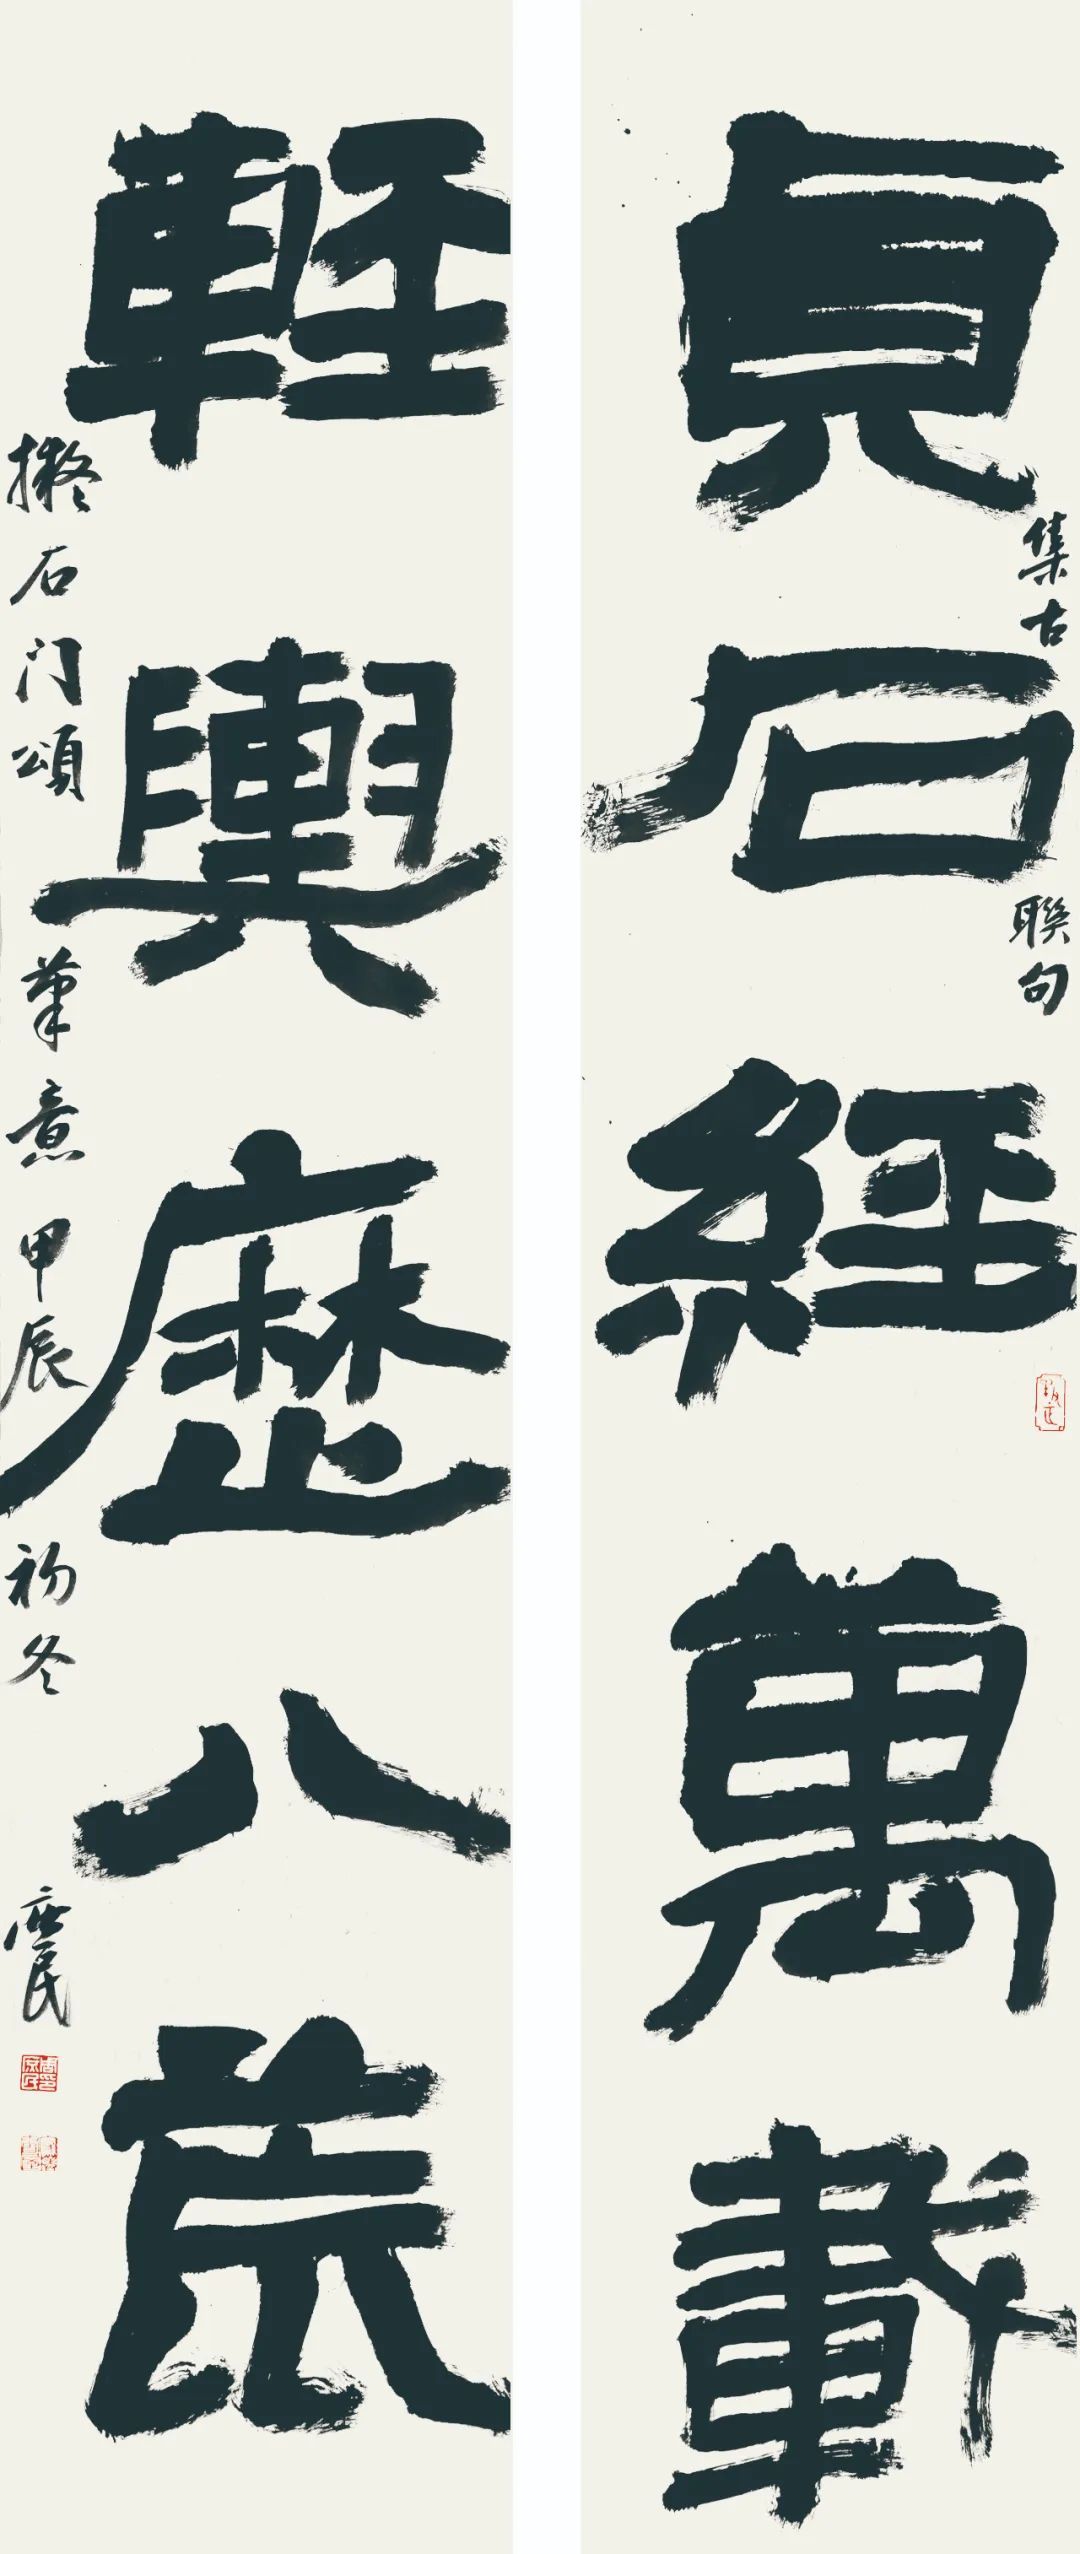 貞石經萬載
集古聯句
輕輿歷八荒
擬石门頌筆意甲辰初冬
庶民